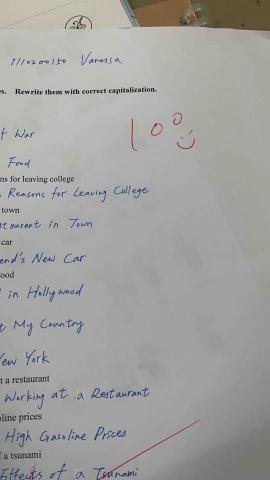 7110200150 Vanessa
s. Rewrite them with correct capitalization.
100
War
Food
ns for leaving college
Reasons for Leaving College
town
in Town
car
New Car
ood
in Hollywood
My Country
New York
t a restaurant
Working at a Restaurant
line prices
High Gasoline Prices
a tsunami
Effects of a Tsunami